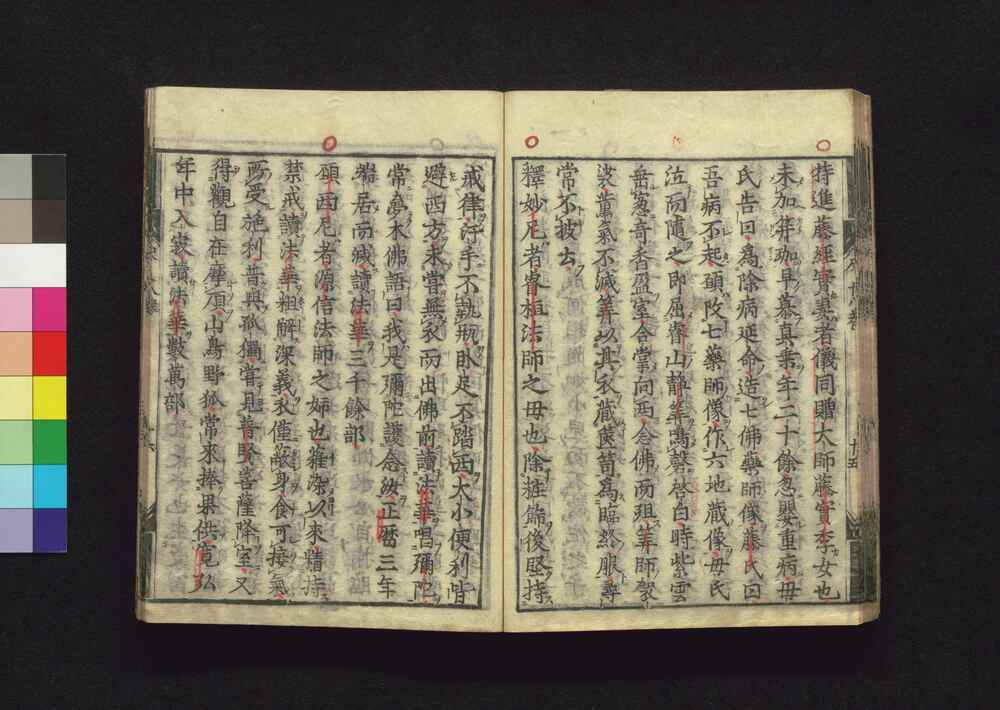 特進藤經實妻者儀同贈大師藤實季女也
未加笄珈早慕真乘年二十餘忽嬰重病母
氏告曰為除病延命造七佛藥師像藤氏曰
吾病不起願改七藥師像作六地藏像母氏
泣而隨之即屈睿山靜筭鳴磬啓白時紫雲
垂窓奇香盈室合掌向西念佛而殂筭師袈
裟薰氣不減筭以其衣藏篋笥為臨終服尋
常不披去
釋妙尼者睿桓法師之母也除粧餝後堅持
戒律汙手不執瓶臥足不踏西大小便利皆
避西方未嘗無衣而出佛前讀法華唱彌陀
常夢木佛語曰我是彌陀護念汝正曆三年
端居而滅讀法華三千餘部
願西尼者源信法師之姉也薙染以來精持
禁戒讀法華粗解深義衣僅蔽身食可接氣
所受施利普與孤獨嘗見普賢菩薩降室又
得觀自在摩頂山鳥野狐常來捧果供寬弘
年中入寂讀法華數萬部